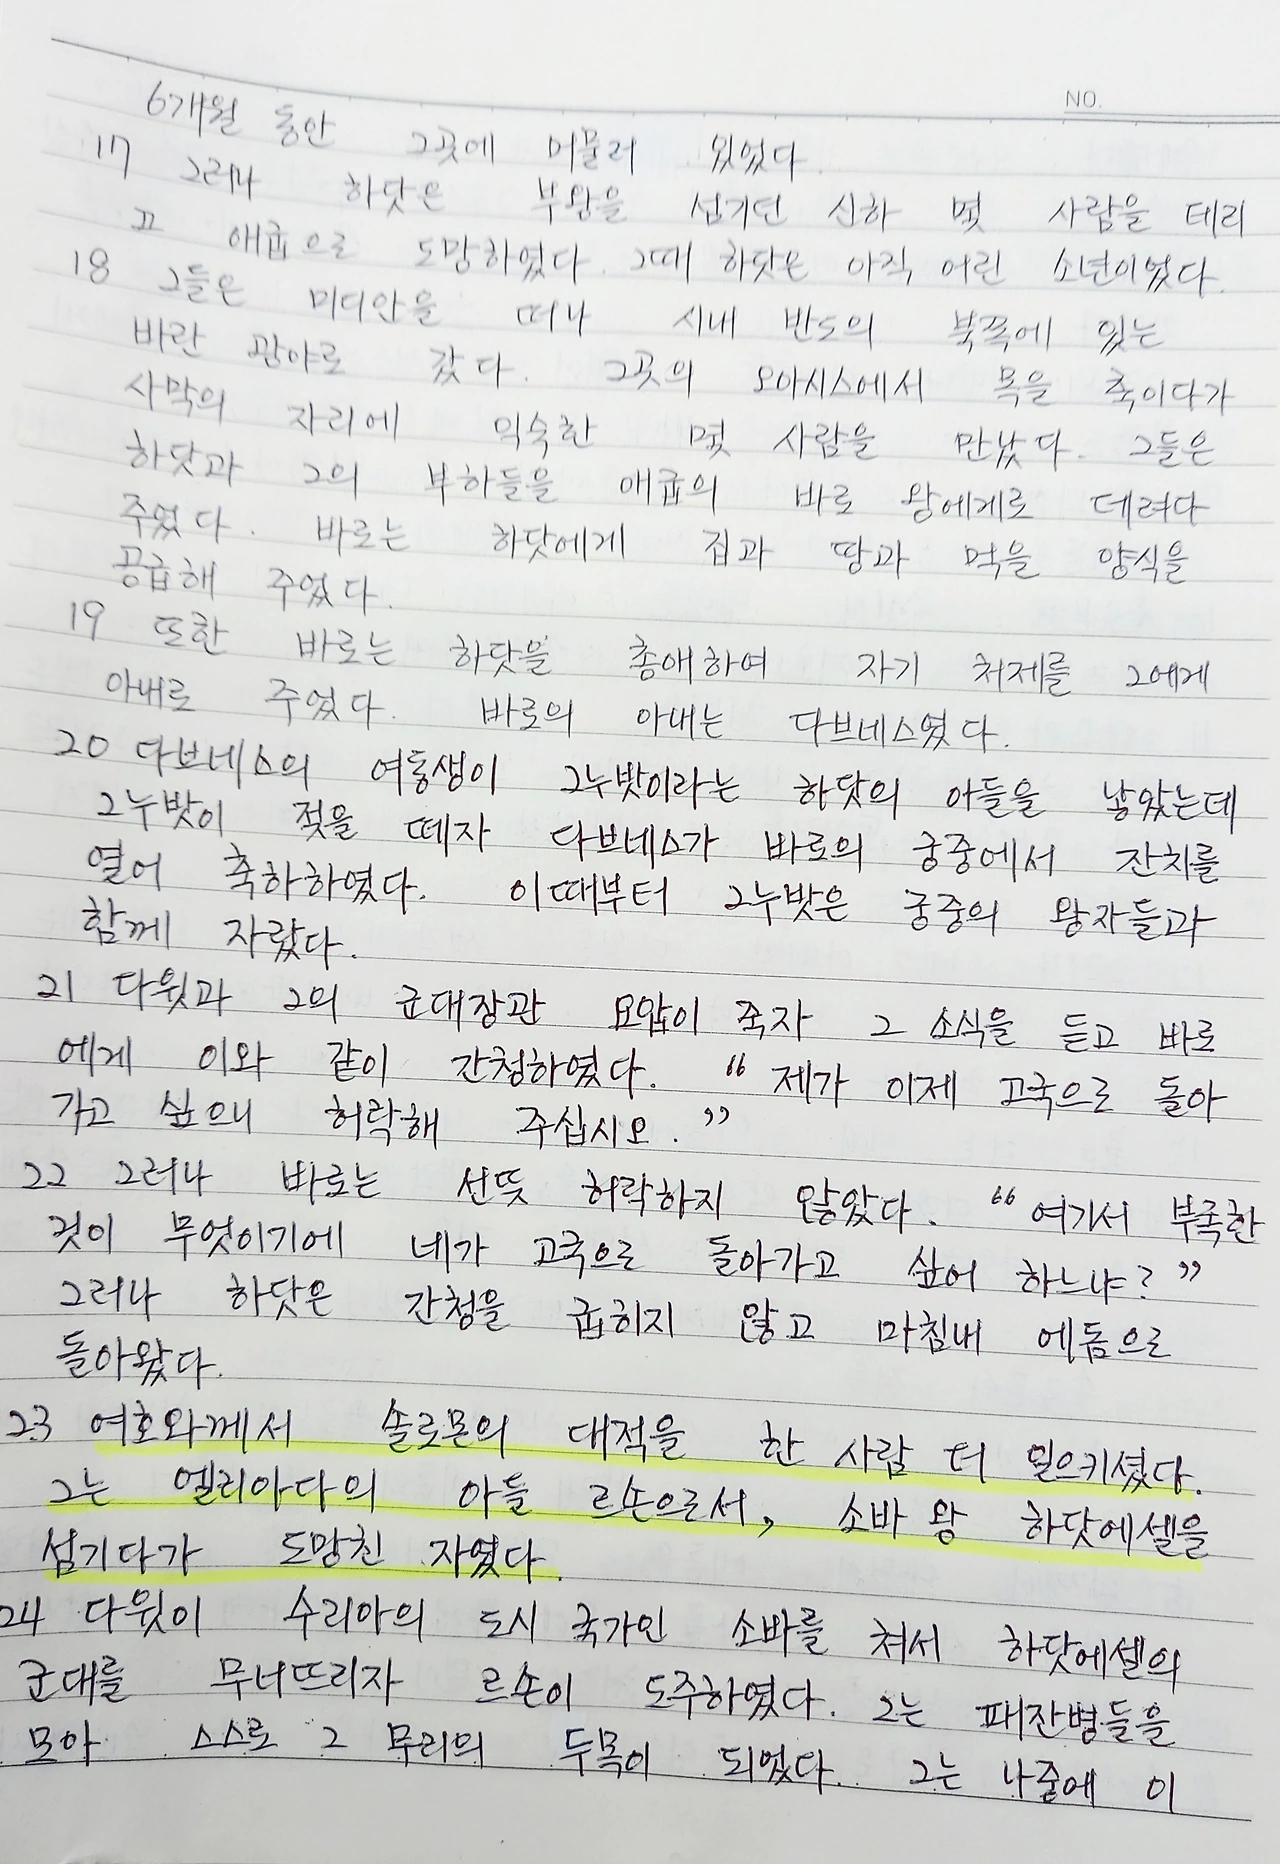 NO.
6개월 동안 그곳에 머물러 있었다
17 그러나 하닷은 부왕을 섬기던 신하 몇 사람을 데리
고 애굽으로 도망하였다. 그때 하닷은 아직 어린 소년이었다.
18 그들은 미디안을 떠나 시내 반도의 북쪽에 있는
바란 광야로 갔다. 그곳의 오아시스에서 목을 축이다가
사막의 지리에 익숙한 몇 사람을 만났다. 그들은
하닷과 그의 부하들을 애굽의 바로 왕에게로 데려다
주었다. 바로는 하닷에게 집과 땅과 먹을 양식을
공급해 주었다.
19 또한 바로는 하닷을 총애하여 자기 처제를 그에게
아내로 주었다. 바로의 아내는 다브네스였다.
20 다브네스의 여동생이 그누밧이라는 하닷의 아들을 낳았는데
그누밧이 젖을 떼자 다브네스가 바로의 궁중에서 잔치를
열어 축하하였다. 이때부터 그누밧은 궁중의 왕자들과
함께 자랐다.
21 다윗과 그의 군대장관 요압이 죽자 그 소식을 듣고 바로
에게 이와 같이 간청하였다. “제가 이제 고국으로 돌아
가고 싶으니 허락해 주십시오.”
22 그러나 바로는 선뜻 허락하지 않았다. “여기서 부족한
것이 무엇이기에 네가 고국으로 돌아가고 싶어 하느냐?”
그러나 하닷은 간청을 굽히지 않고 마침내 에돔으로
돌아왔다.
23 여호와께서 솔로몬의 대적을 한 사람 더 일으키셨다.
그는 엘리아다의 아들 르손으로서, 소바 왕 하닷에셀을
섬기다가 도망친 자였다.
24 다윗이 수리아의 도시 국가인 소바를 쳐서 하닷에셀의
군대를 무너뜨리자 르손이 도주하였다. 그는 패잔병들을
모아 스스로 그 무리의 두목이 되었다. 그는 나중에 이